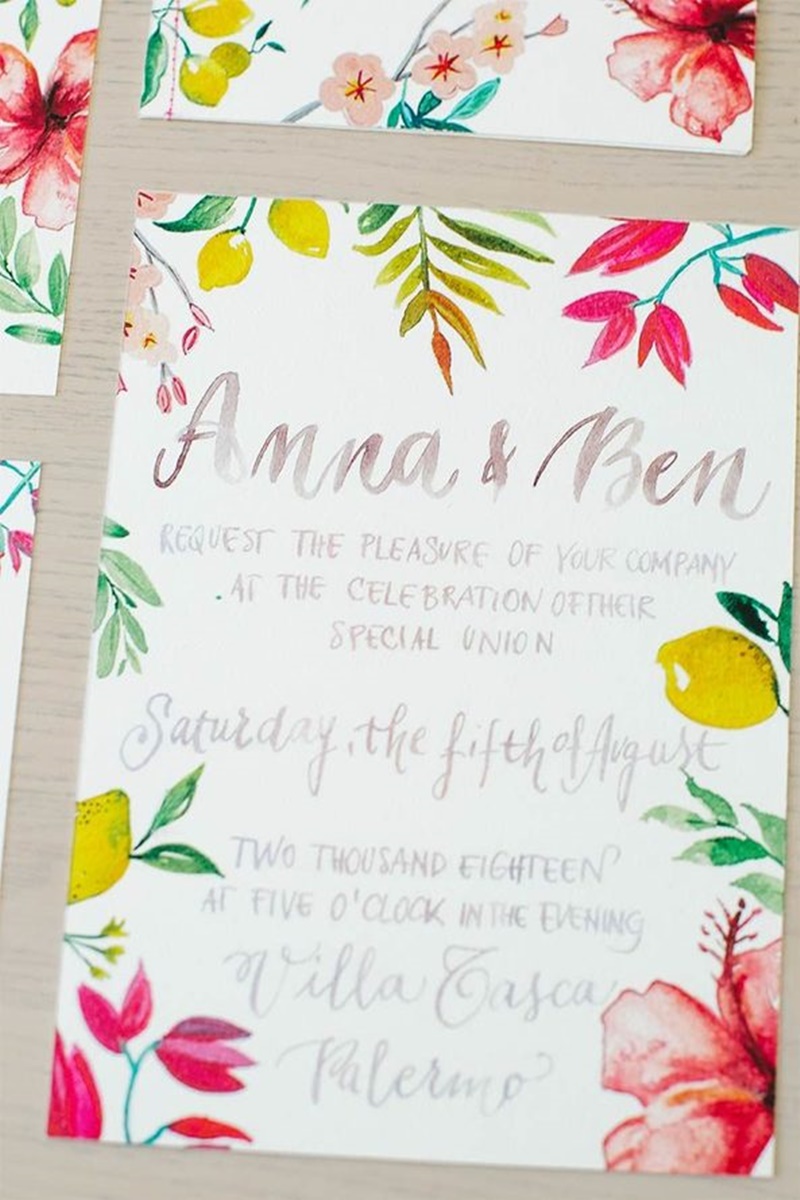 Anna & Ben
REQUEST THE PLEASURE OF YOUR COMPANY
AT THE CELEBRATION OF THEIR
SPECIAL UNION
Saturday, the fifth of August
TWO THOUSAND EIGHTEEN
AT FIVE O'CLOCK IN THE EVENING
Villa Tasca
Palermo